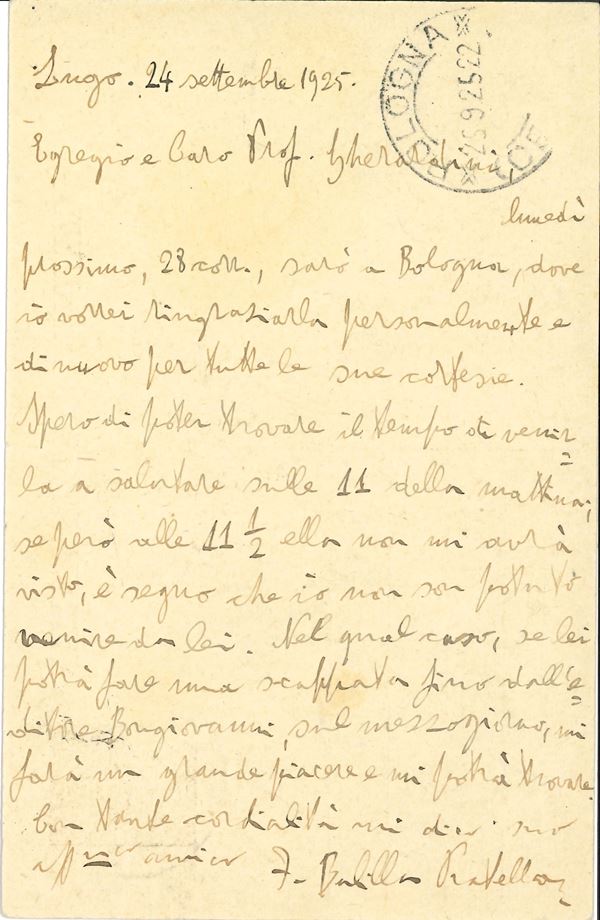 Lugo. 24 settembre 1925.
BOLOGNA
26 9 25 22
Egregio e Caro Prof. Gherardini,
lunedì
prossimo, 28 corr., sarò a Bologna, dove
io vorrei ringraziarla personalmente e
di nuovo per tutte le sue cortesie.
Spero di poter trovare il tempo di venir=
la a salutare sulle 11 della mattina;
se però alle 11 1/2 ella non mi avrà
visto, è segno che io non son potuto
venire da lei. Nel qual caso, se lei
potrà fare una scappata fino dall'e=
ditore Bongiovanni, sul mezzogiorno, mi
farà un grande piacere e mi potrà trovare.
Con tante cordialità mi dico suo
aff.mo amico F. Balilla Pratella